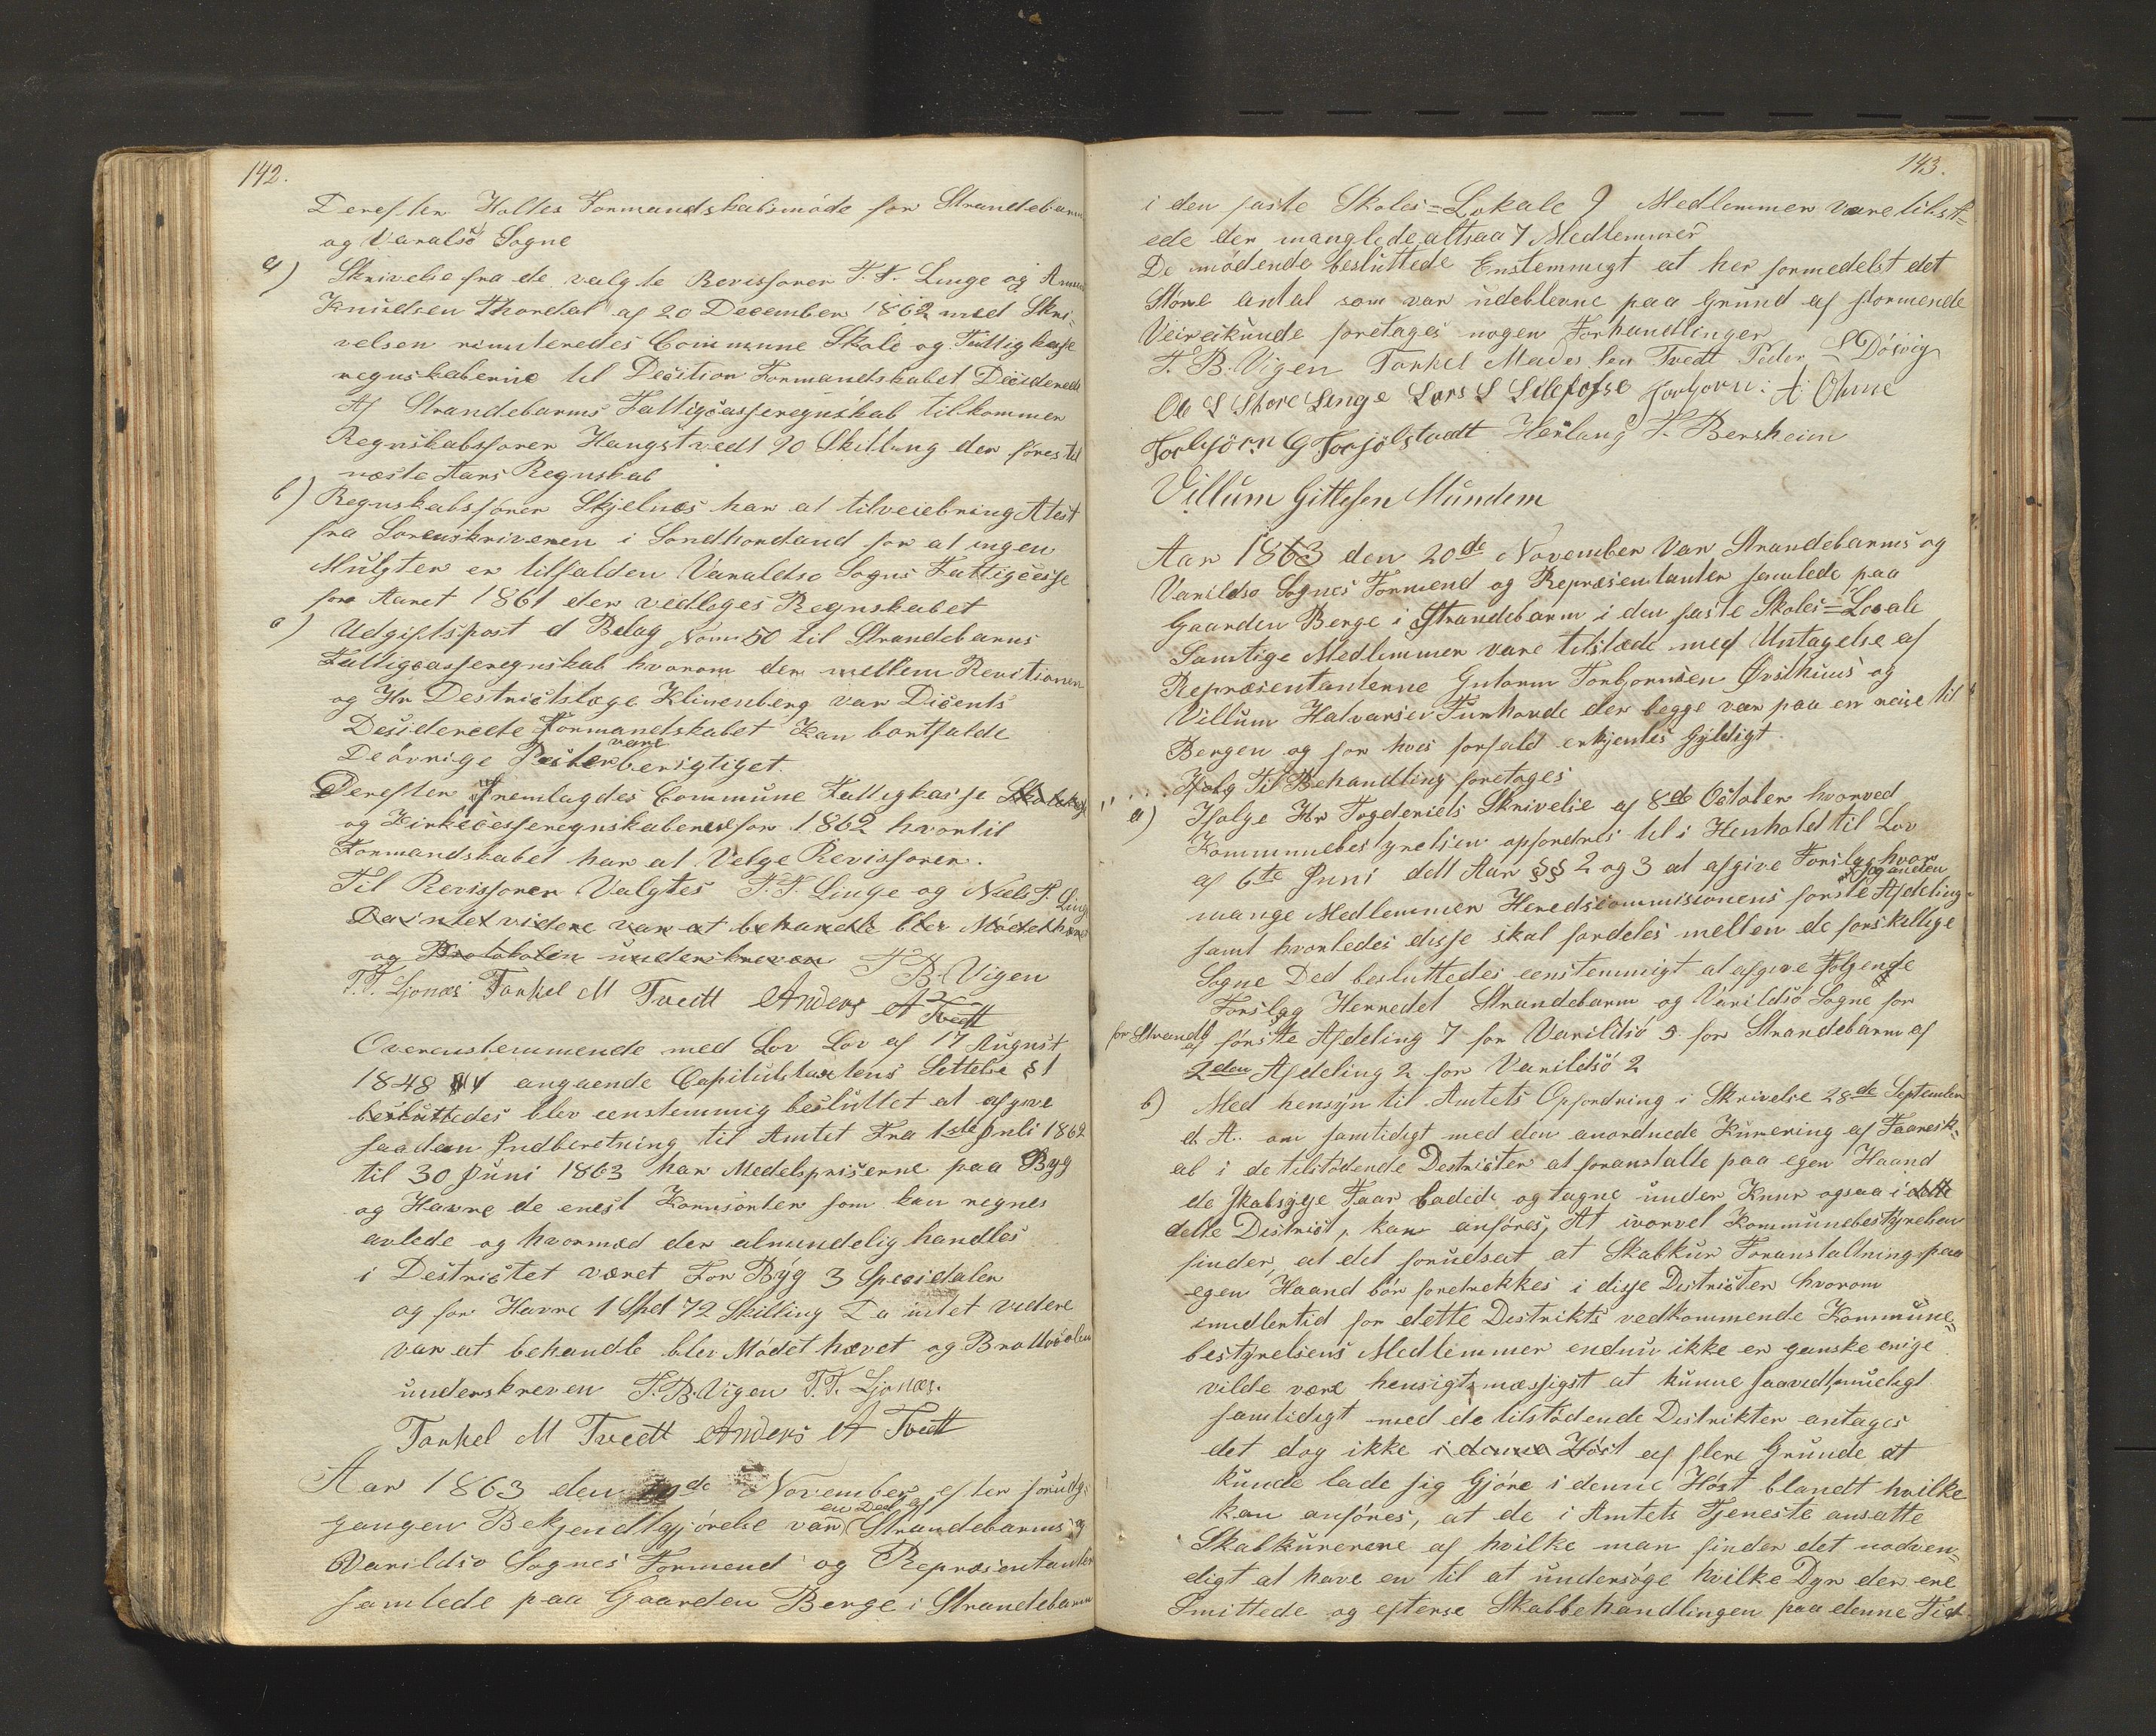 142.
Derefter Holtes Formandskabsmøde for Strandebarm
og Varalsø Sogne
a) Skrivelse fra de valgte Revissorer T. T. Linge og
Knudsen Thordal af 20 December 1862 med Skri-
velsen remiteredes Commune Skole og Fattigkasse
regnskaberne til Decition Formandskabet Deciderede
At Strandebarms Fattigcasseregnskab tilkommer
Regnskabsfører Haugstvedt 90 Skilling der føres til
næste Aars Regnskab
b) Regnskabsfører Skjelnæs har at tilveiebring Atest
fra Sorenskriveren i Søndhordland for at ingen
Mulgter er tilfalden Varaldsø Sogns Fattigcasse
for Aaret 1861 der vedlæges Regnskabet
c) Udgiftspost d Belag Nom 50 til Strandebarms
Fattigcasseregnskab hvorom der mellem Revitionen
og Hr Destrictslæge Klinenberg var Dicents
Desiderede Formandskabet Kan bortfalde
De øvrige Poster vare berigtiget.
Derefter fremlagdes Commune Fattigkasse Skolekasse
og Kirkecasseregnskaberne for 1862 hvortil
Formandskabet har at Velge Revissorer.
Til Revissorer Valgtes T. T. Linge og Niels T. Linge
Da intet videre var at behandle blev Mødet hævet
og Protokolen underskreven T B. Vigen
T. T. Ljonæs Torkel M Tvedt Anders A Tvedt
Overenstemmende med Lov Lov af 17 August
1848 angaende Capitulstaxtens Settelse § 1
besluttedes blev eenstemmig besluttet at afgive
saadan Indberetning til Amtet Fra 1ste Juli 1862
til 30 Juni 1863 har Medelspriserne paa Byg
og Havre de enest Kornsorter som kan regnes
avlede og hvormed der almindelig handles
i Destrictet været For Byg 3 Specidaler
og for Havre 1 Spd 72 Skilling Da intet videre
var at behandle blev Mødet hævet og Prottocolen
underskreven T. B. Vigen T. T. Ljonæs.
Torkel M Tvedt Anders A Tvedt
Aar 1863 den November efter forud-
gangen Bekjendtgjørelse var en Deel af Strandebarms og
Varildsø Sognes Formend og Repræsentanter
samlede paa Gaarden Berge i Strandebarm
143.
i den faste Skoles=Lokale 9 Medlemmer vare tilst-
ede der manglede altsaa 7 Medlemmer
De mødende besluttede Enstemmigt at her formedelst det
Støre antal som var udeblevne paa Grund af stormende
Veir eikunde foretages nogen Forhandlinger
T. B. Vigen Torkel Mades Sen Tvedt Peder L Døsvig
Ole L Store Linge Lars L Lillefosse Torbjørn: A: Ohme
Torbjørn G Torjølstvedt Herlaug T. Bersheim
Villum Gittlesen Mundem
Aar 1863 den 20de November Var Strandebarms og
Varildsø Sognes Formend og Repræsentanter samlede paa
Gaarden Berge i Strandebarm i den faste Skoles=Locale
Samtige Medlemmer vare tilstæde med Untagelse af
Repræsentanterne Gutorm Torbjornsen Øvsthuus og
Villum Halvarsen Furhovde der begge var paa en reise til
Bergen og for hvis forfald erkjentes Gyldigt.
Til Behandling foretoges
a) Ifølge Hr Fogderiets Skrivelse af 8de October hvorved
Kommunebestyrelsen opfordres til i Henhold til Lov
af 6te Juni dette Aar §§ 2 og 3 at afgive Forslag hvor
mange Medlemmer Heredscommisionens første og anden Afdeling
samt hvorledes disse skal fordeles mellen de forskellige
Sogne Ded besluttedes eenstemmigt at afgive Følgende
Forslag Herredet Strandebarm og Varildsø Sogne for
for Strandb af første Afdeling 7 for Varildsø 5 for Strandebarm af
2den Afdeling 2 for Varildsø 2
b) Med hensyn til Amtets Opfordring i Skrivelse 28de September
d. A. om samtidigt med den anordnede Kurering af Faaresk-
ab i de tilstødende Destricter at foranstalte paa egen Haand
de Skabsyge Faar badede og tagne under Kuur ogsaa i dette
dette District, kan anføres, At ivorvel Kommunebestyrelsen
finder, at det forudsat at Skabkur Foranstaltning paa
egen Haand bør foretrekkes i disse Districter hvorom
imidlertid for dette Distrikts vedkommende Kommune-
bestyrelsens Medlemmer endnu ikke er ganske enige
vilde være hensigtsmæssigst at kunne saavidt muligt
samtidigt med de tilstødende Distrikter antages
det dog ikke i denne Høst af flere Grunde at
kunde lade sig Gjøre i denne Høst blandt hvilke
kan anføres, at de i Amtets Tjeneste ansatte
Skabkurerere af hvilke man finder det nødven-
digt at have en til at undersøge hvilke Dyr der ere
Smittede og efterse Skabbehandlingen paa denne Tid